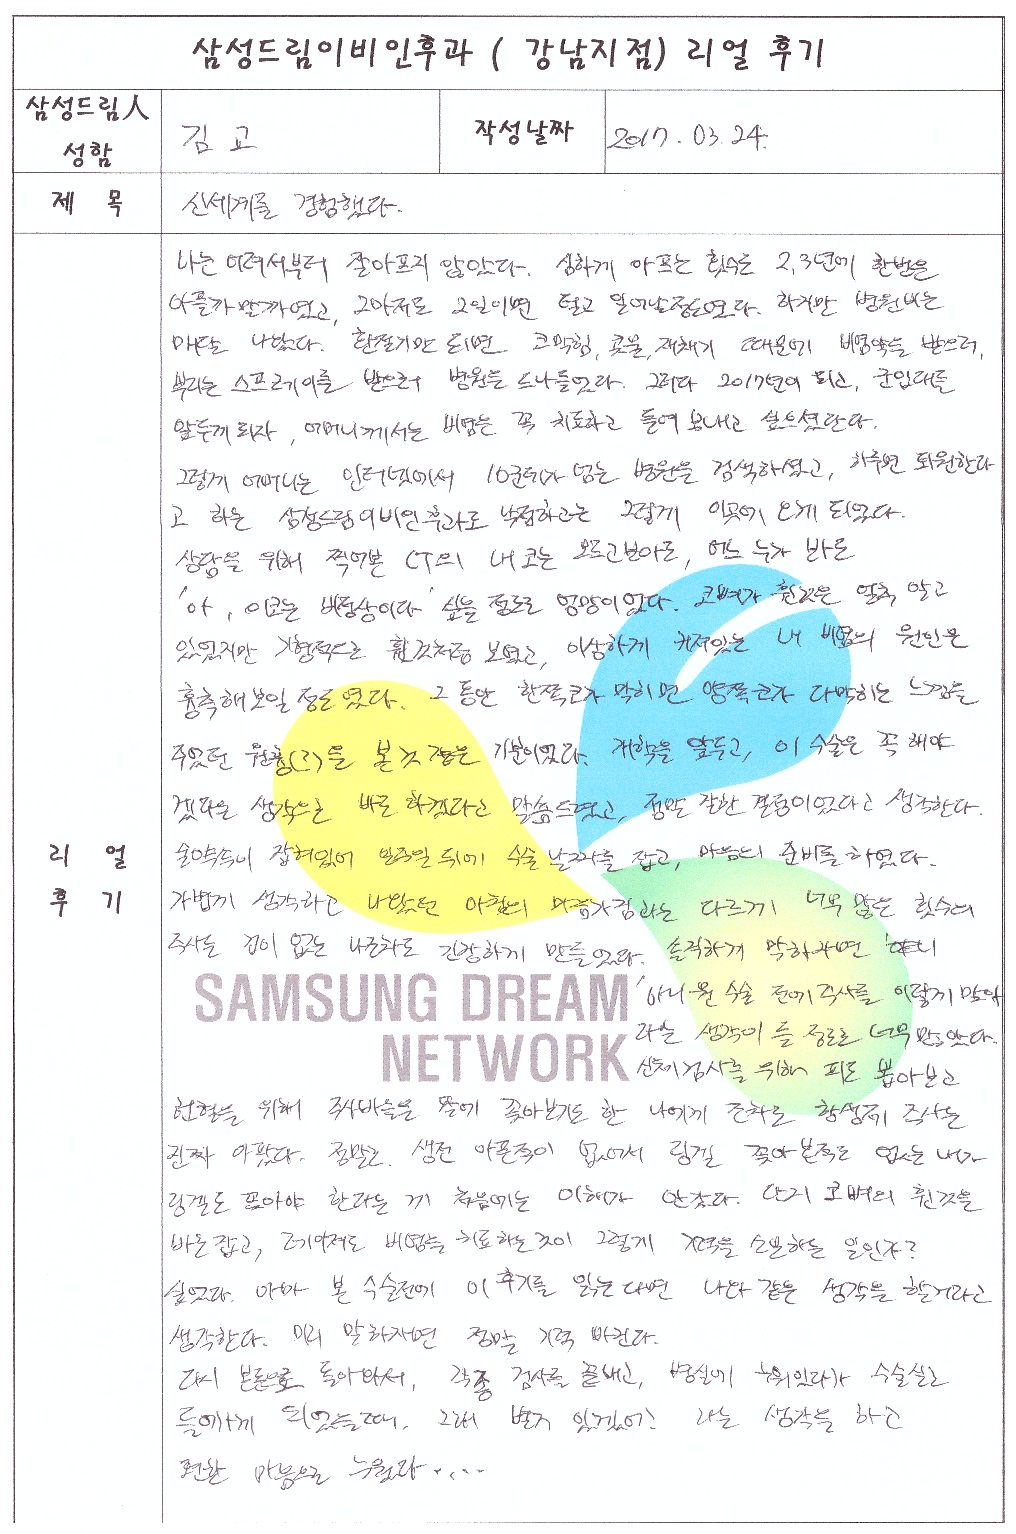 삼성드림이비인후과 ( 강남지점) 리얼 후기
삼성드림人
성함
김 고
작성날짜
2017. 03. 24.
제 목
신세계를 경험했다.
리 얼
후 기
나는 어려서부터 잘아프지 않았다. 심하게 아프는 횟수는 2,3년에 한번을
아플까말까였고, 그마저도 2일이면 털고 일어날정도였다. 하지만 병원비는
매달 나갔다. 환절기만 되면 코막힘, 콧물, 재채기 때문에 비염약을 받으러,
뿌리는 스프레이를 받으러 병원을 드나들었다. 그러다 2017년이 되고, 군입대를
앞두게 되자, 어머니께서는 비염은 꼭 치료하고 들여 보내고 싶으셨단다.
그렇게 어머니는 인터넷에서 10군데가 넘는 병원을 검색하셨고, 하루면 퇴원한다
고 하는 삼성드림이비인후과로 낙점하고는 그렇게 이곳에 오게 되었다.
상담을 위해 찍어본 CT의 내 코는 모르고보아도, 어느 누가 봐도
'아, 이코는 비정상이다' 싶을 정도로 엉망이었다. 코뼈가 휜것은 얼추 알고
있었지만 기형적으로 휜것처럼 보였고, 이상하게 커져있는 내 비염의 원인은
흉측해보일 정도였다. 그 동안 한쪽코가 막히면 양쪽코가 다막히는 느낌을
주었던 원흉(?)을 본것 같은 기분이었다. 개학을 앞두고, 이 수술은 꼭 해야
겠다는 생각으로 바로 하겠다고 말씀드렸고, 정말 잘한 결정이었다고 생각한다.
술약속이 잡혀있어 일주일 뒤에 수술 날짜를 잡고, 마음의 준비를 하였다.
가볍게 생각하고 나왔던 아침의 마음가짐과는 다르게 너무 많은 횟수의
주사는 겁이 없는 나조차도 긴장하게 만들었다. 솔직하게 말하자면
'아니 뭔 수술 전에 주사를 이렇게 맞아'
라는 생각이 들 정도로 너무 많았다.
신체검사를 위해 피도 뽑아보고
SAMSUNG DREAM
NETWORK
헌혈을 위해 주사바늘을 팔에 꽂아보기도 한 나에게 조차도 항생제 주사는
진짜 아팠다. 정말로. 생전 아픈적이 없어서 링겔 꽂아 본적도 없는 내가
링겔도 꽂아야 한다는 게 처음에는 이해가 안갔다. 단지 코뼈의 휜것을
바로잡고, 레이저로 비염을 치료하는것이 그렇게 기력을 소모하는 일인가?
싶었다. 아마 본 수술전에 이 후기를 읽는다면 나와 같은 생각을 할거라고
생각한다. 미리 말하자면 정말 기력 빠진다.
다시 본론으로 돌아와서, 각종 검사를 끝내고, 병실에 누워있다가 수술실로
들어가게 되었을때, 그래 별거 있겠어? 라는 생각을 하고
편한 마음으로 누웠다.....